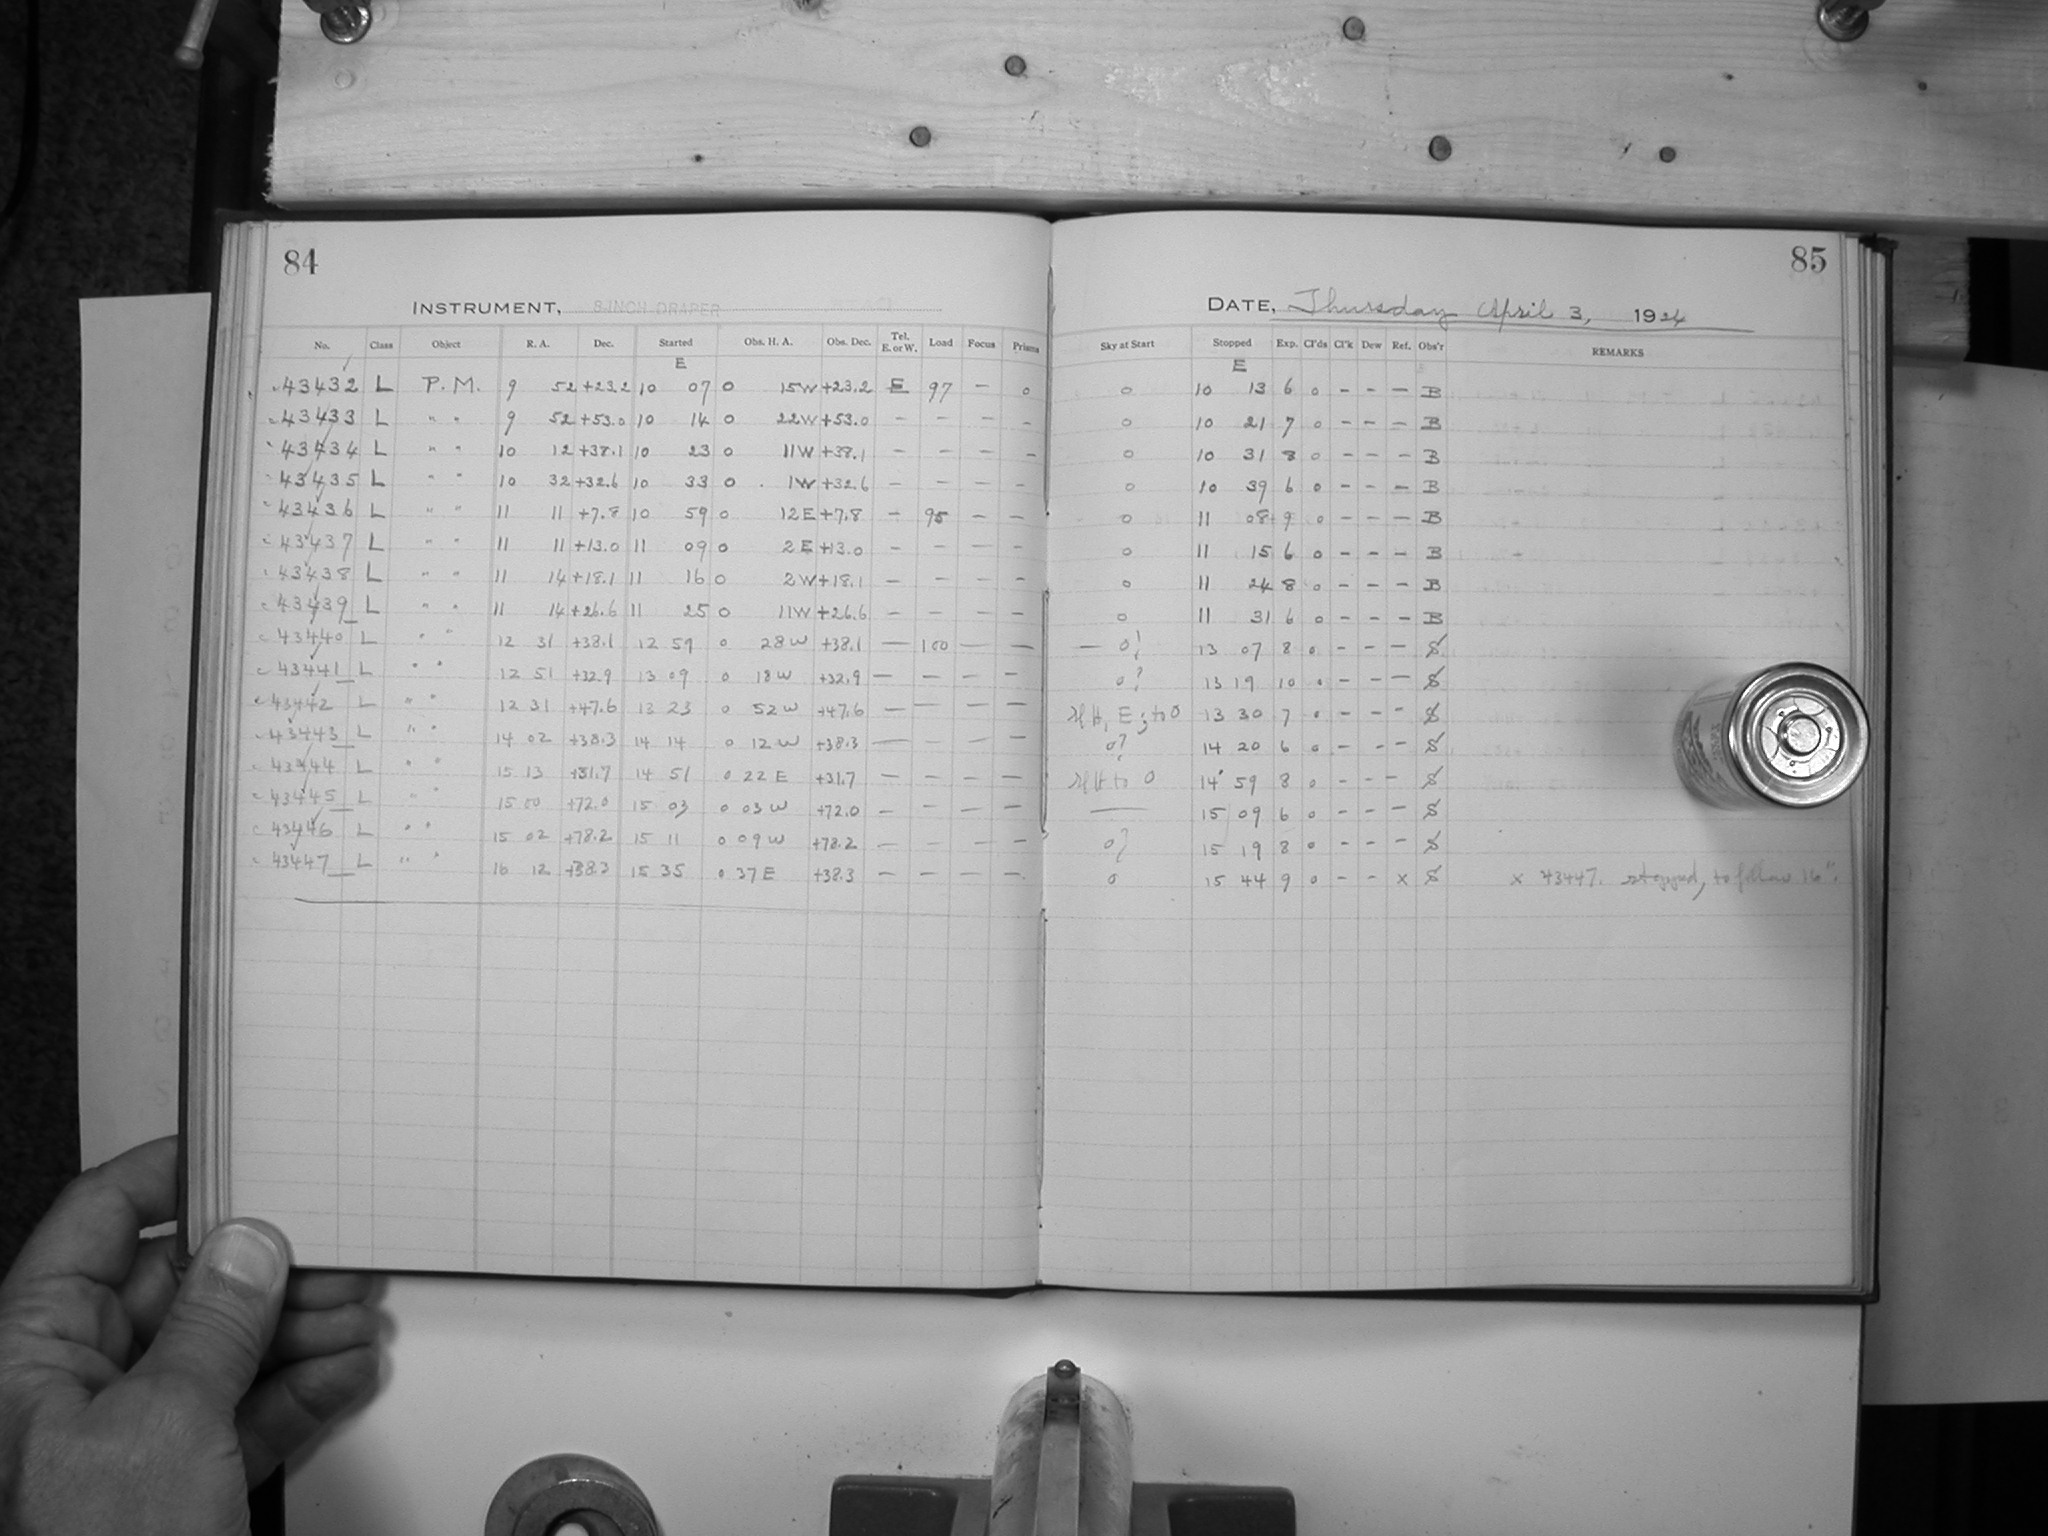 84
INSTRUMENT, 8-INCH DRAPER
No. Class Object R. A. Dec. Started Obs. H. A. Obs. Dec. Tel. E. or W. Load Focus Prisms
E
43432 L P. M. 9 52 +23.2 10 07 0 15W +23.2 E 97 – 0
43433 L " " 9 52 +53.0 10 14 0 22W +53.0 – – – –
43434 L " " 10 12 +38.1 10 23 0 11W +38.1 – – – –
43435 L " " 10 32 +32.6 10 33 0 1W +32.6 – – – –
43436 L " " 11 11 +7.8 10 59 0 12E +7.8 – 95 – –
43437 L " " 11 11 +13.0 11 09 0 2E +13.0 – – – –
43438 L " " 11 14 +18.1 11 16 0 2W +18.1 – – – –
43439 L " " 11 14 +26.6 11 25 0 11W +26.6 – – – –
43440 L " " 12 31 +38.1 12 59 0 28W +38.1 – 100 – –
43441 L " " 12 51 +32.9 13 09 0 18W +32.9 – – – –
43442 L " " 12 31 +47.6 13 23 0 52W +47.6 – – – –
43443 L " " 14 02 +38.3 14 14 0 12W +38.3 – – – –
43444 L " " 15 13 +31.7 14 51 0 22E +31.7 – – – –
43445 L " " 15 00 +72.0 15 03 0 03W +72.0 – – – –
43446 L " " 15 02 +78.2 15 11 0 09W +78.2 – – – –
43447 L " " 16 12 +38.3 15 35 0 37E +38.3 – – – –
85
DATE, Thursday April 3, 1924
Sky at Start Stopped Exp. Cl'ds Cl'k Dew Ref. Obs'r REMARKS
E
0 10 13 6 0 – – – B
0 10 21 7 0 – – – B
0 10 31 8 0 – – – B
0 10 39 6 0 – – – B
0 11 08 9 0 – – – B
0 11 15 6 0 – – – B
0 11 24 8 0 – – – B
0 11 31 6 0 – – – B
– 0? 13 07 8 0 – – – S
0? 13 19 10 0 – – – S
E; to 0 13 30 7 0 – – – S
0? 14 20 6 0 – – – S
to 0 14 59 8 0 – – – S
– 15 09 6 0 – – – S
0? 15 19 8 0 – – – S
0 15 44 9 0 – – x S x 43447. stopped, to follow 16".